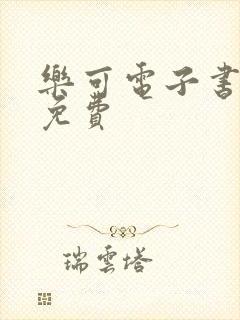 樂可電子書
免費
瑞雲塔